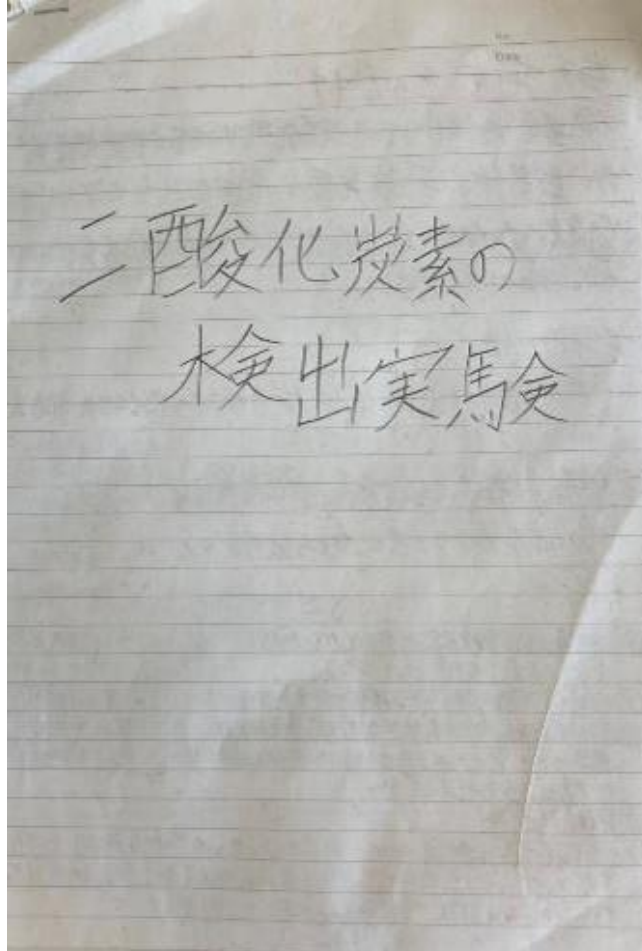 No.
Date
二酸化炭素の
検出実験